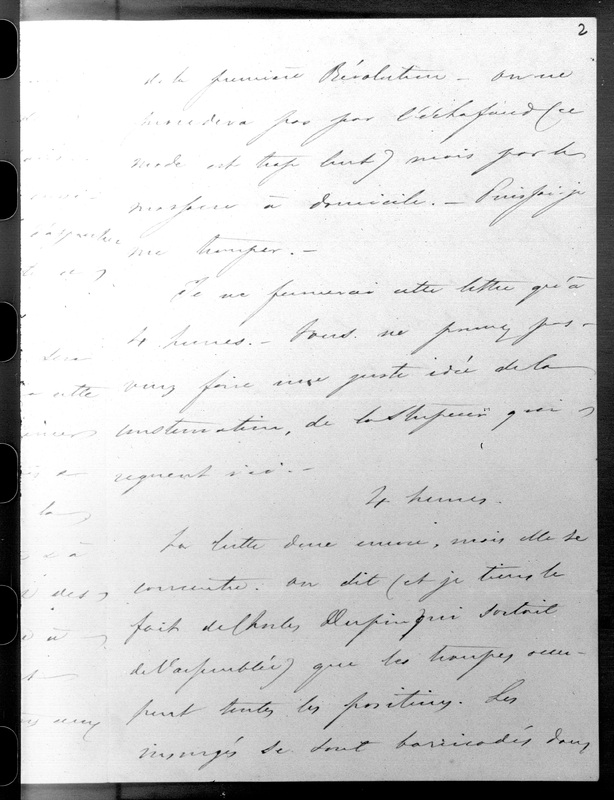 2
de la première Révolution — on ne
procedera pas par l'échafaud (ce
mode est trop lent) mais par le
massacre à domicile. — Puissai-je
me tromper. —
Je ne fermerai cette lettre qu'à
4 heures. — Vous ne pouvez pas
vous faire une juste idée de la
consternation, de la stupeur qui
regnent ici. —
4 heures.
La lutte dure encore, mais elle se
concentre. on dit (et je tiens le
fait de Charles Dupin qui sortait
de l'assemblée) que les troupes occu-
pent toutes les positions. Les
insurgés se sont barricadés dans